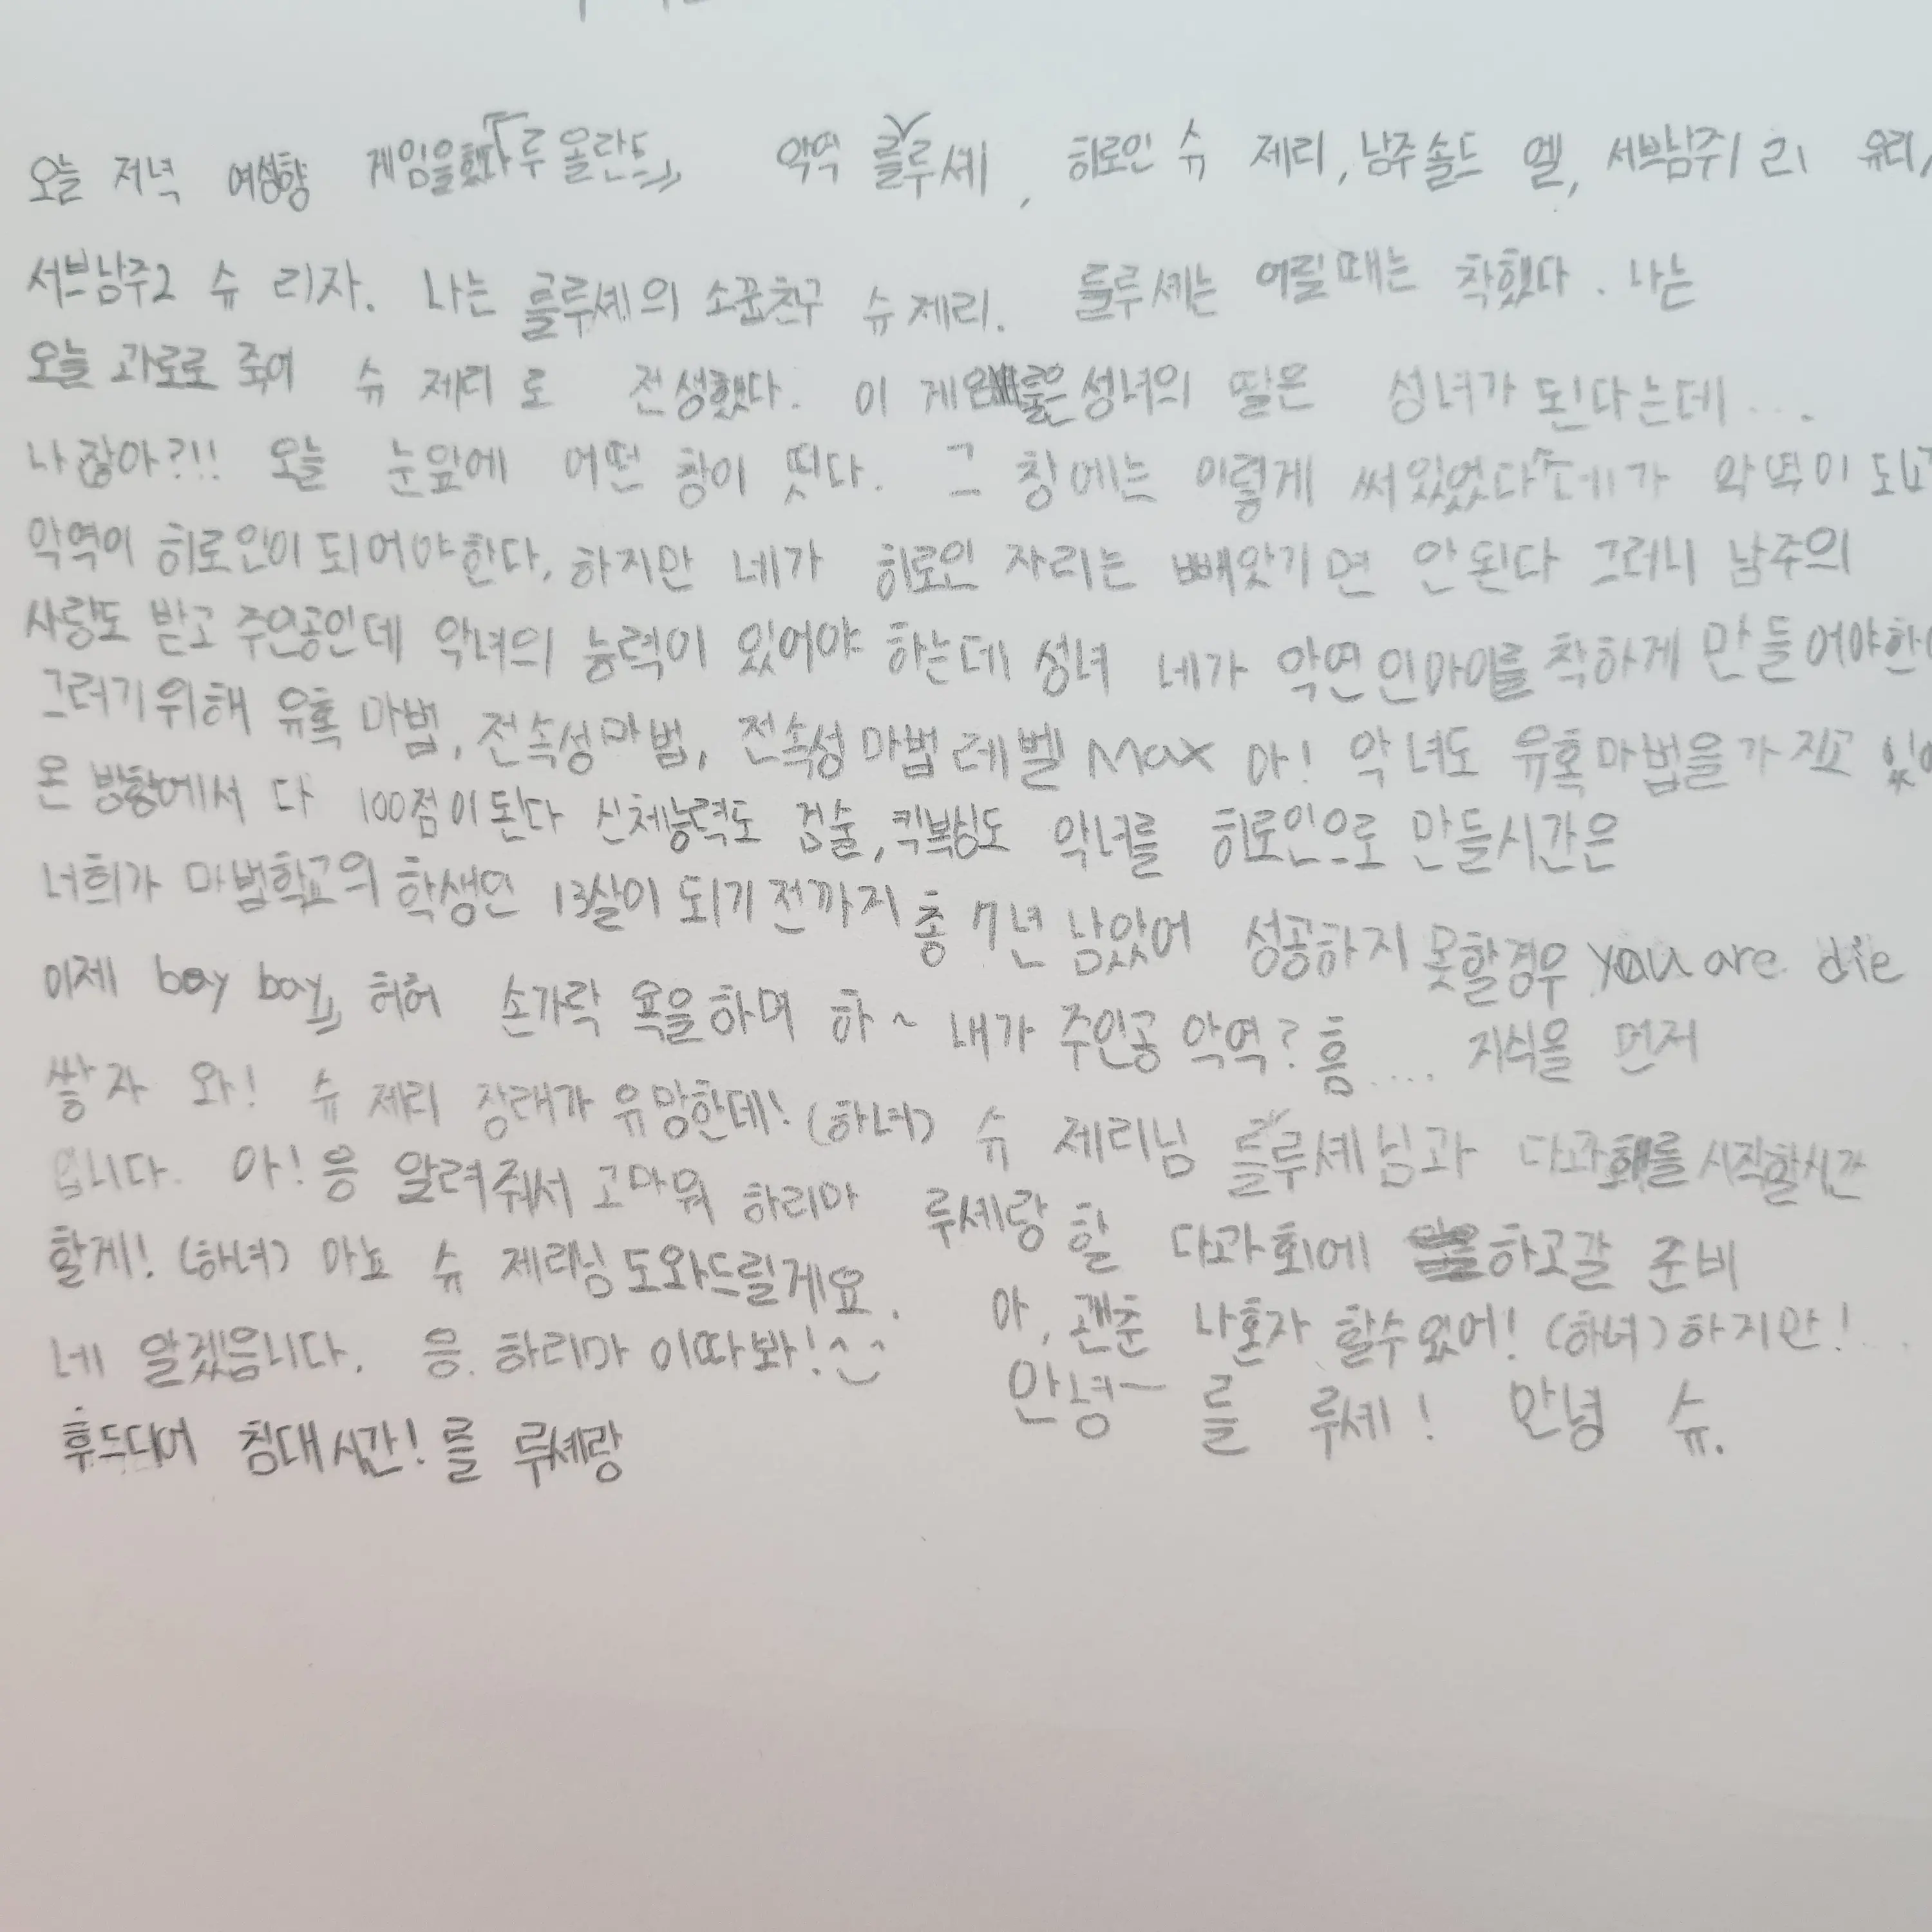 오늘 저녁 여성향 게임을했다『루 올란드』 악역 를∨루셰, 히로인 슈 제리, 남주솔드 엘, 서브남주1 리 유리,
서브남주2 슈 리자. 나는 를루셰의 소꿉친구 슈제리. 를루셰는 어릴때는 착했다. 나는
오늘 과로로 죽어 슈 제리로 전생했다. 이 게임 성녀의 딸은 성녀가 된다는데....
나잖아?!! 오늘 눈앞에 어떤 창이 떳다. 그 창에는 이렇게 써있었다 네가 악역이 되고
악역이 히로인이 되어야한다. 하지만 네가 히로인 자리는 빼앗기면 안된다 그러니 남주의
사랑도 받고 주인공인데 악녀의 능력이 있어야 하는데 성녀 네가 악연인아이를 착하게 만들어야한
그러기위해 유혹 마법, 전속성마법, 전속성마법레벨 Max 아! 악녀도 유혹마법을가지고
온 방향에서 다 100점이된다 신체능력도 검술,킥복싱도 악녀를 히로인으로 만들시간은
너희가 마법학교의 학생인 13살이 되기전까지 총 7년 남았어 성공하지 못할경우 you are die
이제 boy boy』 허허 손가락 욕을하며 하~ 내가 주인공 악역? 흠.... 지식을 먼저
쌓자 와! 슈 제리 장래가 유망한데! (하녀) 슈 제리님 를∨루셰님과 다과회를 시작할시간
입니다. 아! 응 알려줘서 고마워 하리마 루셰랑 할 다과회에 하고갈 준비
할게! (하녀) 아뇨 슈 제리님 도와드릴게요. 아, 괜춘 나혼자 할수있어! (하녀) 하지만!...
네 알겠읍니다. 응. 하리마 이따봐!^^ 안녕~ 를 루셰! 안녕 슈.
후드디어 침대시간! 를 루셰랑